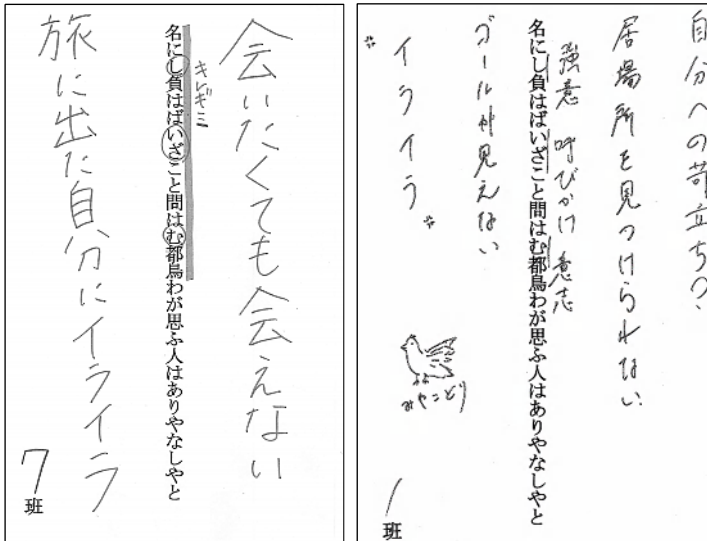 会いたくても会えない
キレギミ
名にし負はばいざこと問はむ都鳥わが思ふ人はありやなしやと
旅に出た自分にイライラ
7班
自分への苛立ち?
居場所を見つけられない
強意 呼びかけ 意志
名にし負はばいざこと問はむ都鳥わが思ふ人はありやなしやと
ゴールが見えない
イライラ
みやこどり
1班